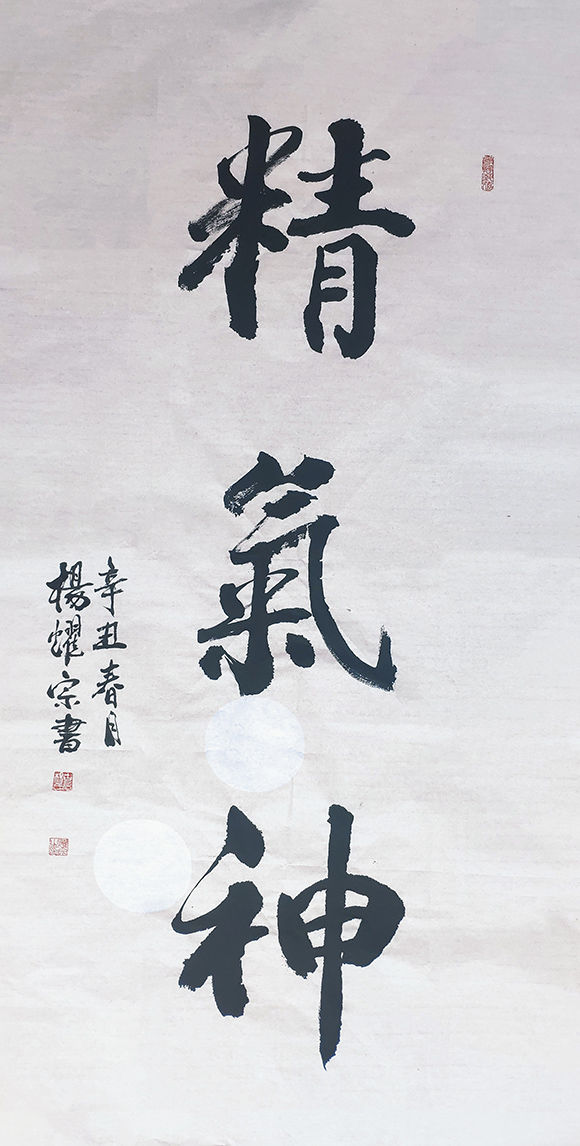 精氣神
辛丑春月
楊耀宗書